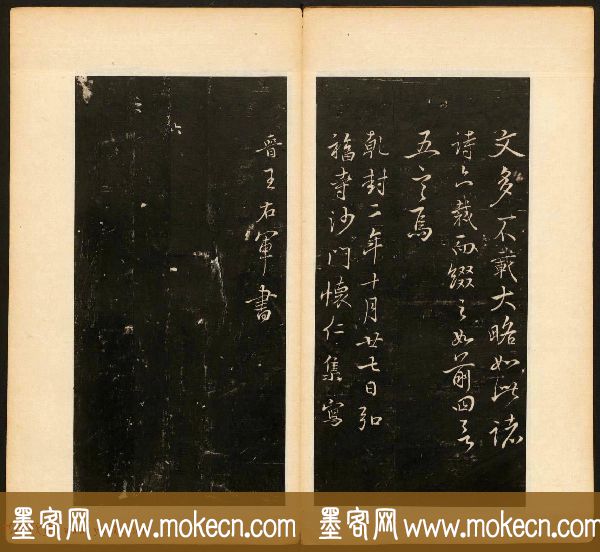 文多不載大略如此諸
詩亦載而綴之如前四言
五言焉
乾封二年十月廿七日弘
福寺沙門懷仁集寫
晉王右軍書
墨客网www.mokecn.com
墨客网www.mokecn.com